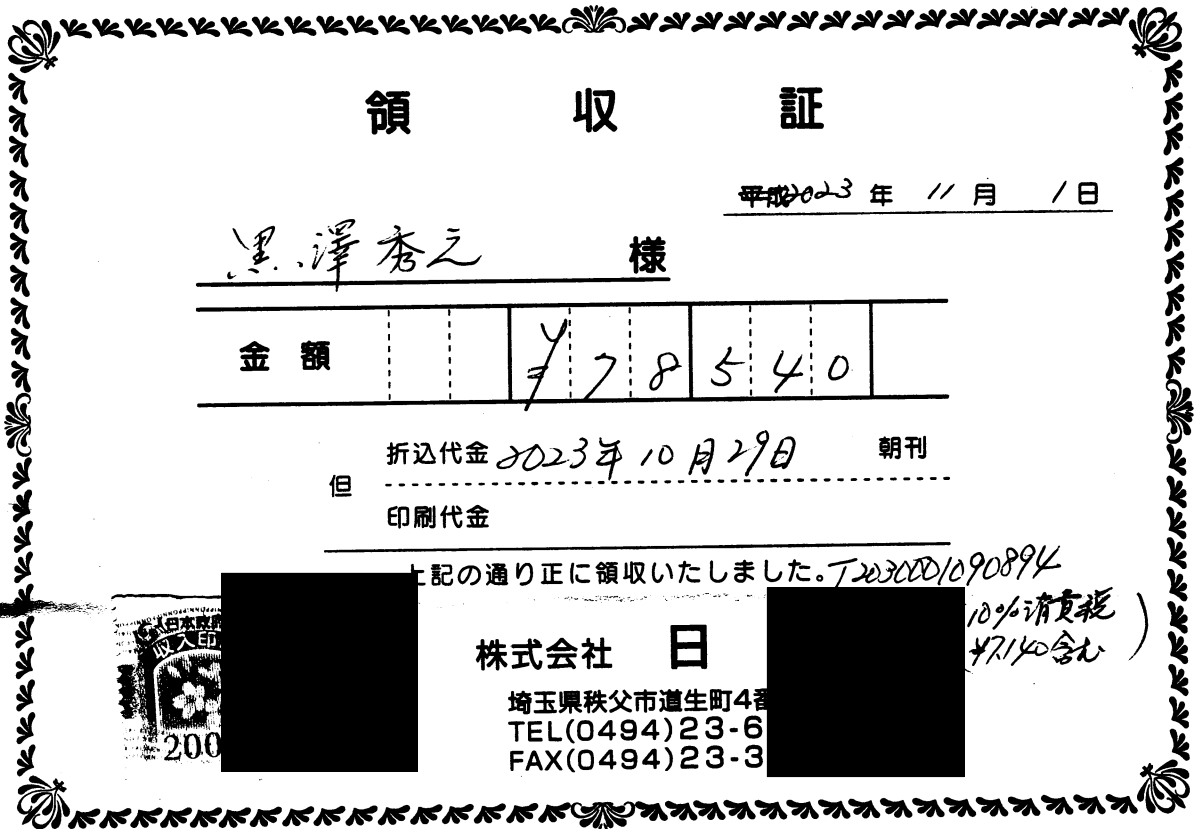 領収証
平成2023年11月1日
黒澤秀之 様
金額 ¥78540
折込代金 2023年10月29日 朝刊
但
印刷代金
上記の通り正に領収いたしました。T2030001090894
10%消費税
¥7,140含む)
日本政府
収入印
200
株式会社 日
埼玉県秩父市道生町4番
TEL(0494)23-6
FAX(0494)23-3